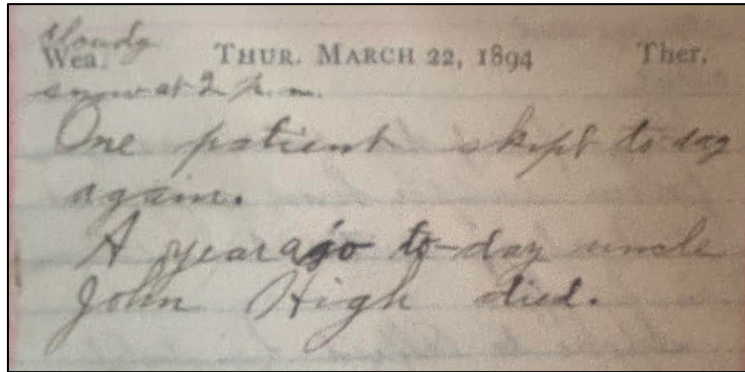 cloudy
Wea. THUR. MARCH 22, 1894 Ther.
snow at 2 p.m.
One patient skipt to-day
again.
A year ago to-day uncle
John High died.